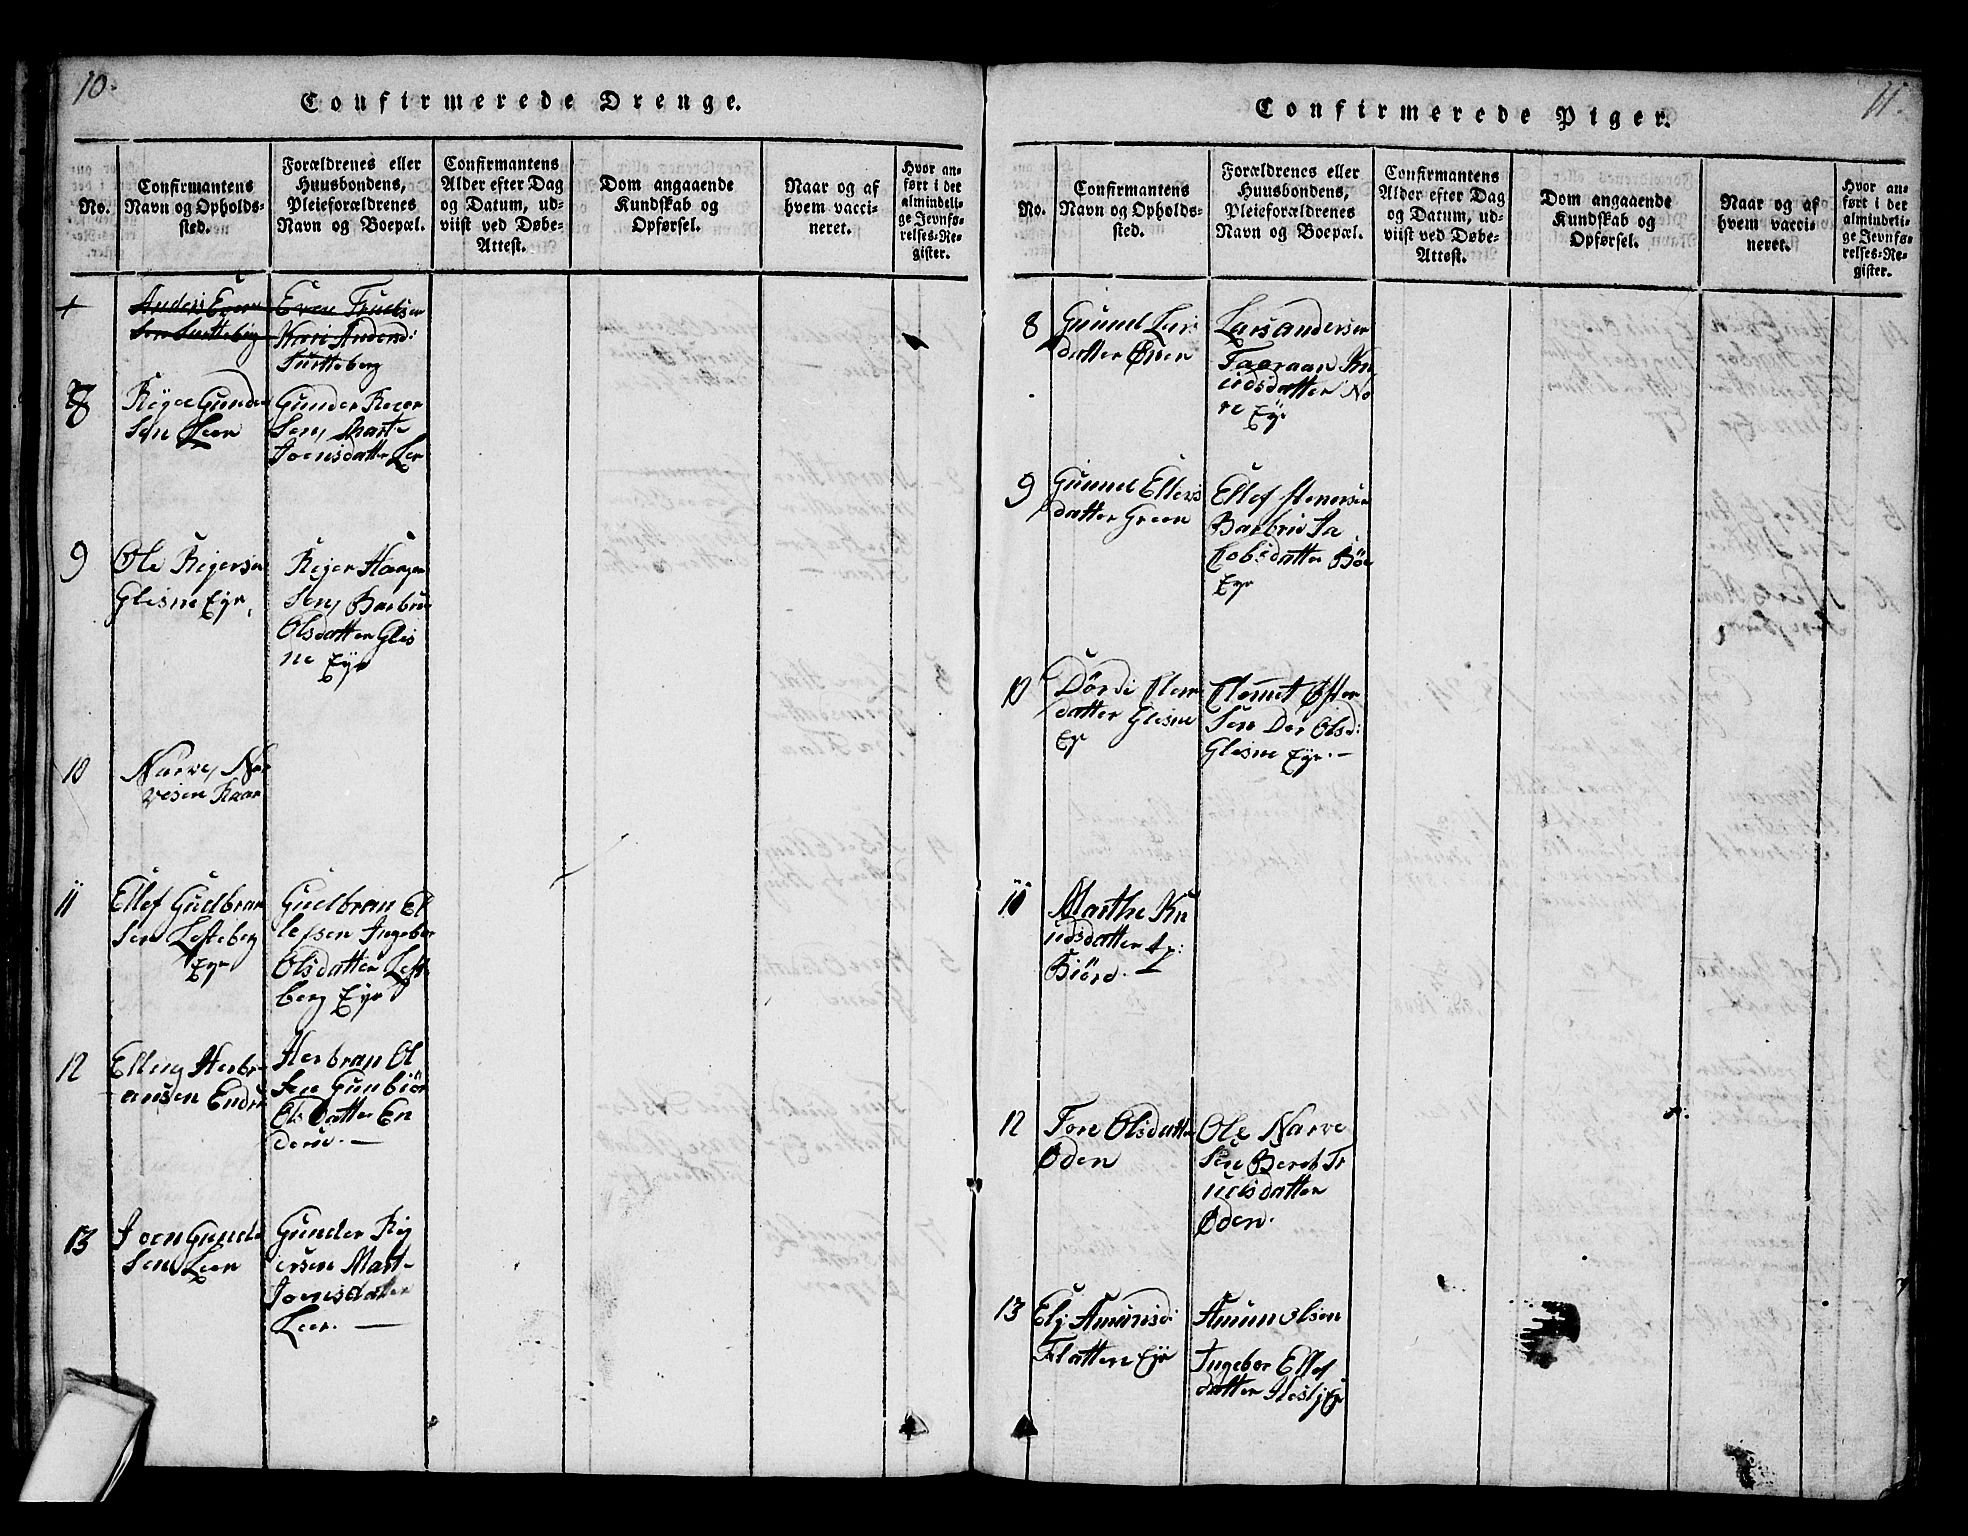 10.
Confirmerede Drenge.
No.
Confirmantens
Navn og Opholds-
sted.
Forældrenes eller
Huusbondens,
Pleieforældrenes
Navn og Boepæl.
Confirmantens
Alder efter Dag
og Datum, ud-
viist ved Døbe-
Attest.
Dom angaaende
Kundskab og
Opførsel.
Naar og af
hvem vacci-
neret.
Hvor an-
ført i det
almindeli-
ge Jevnfø-
relses-Re-
gister.
+
Anders Even
Sen Surtteberg
Even Truelsen
Kari Andersd:
Surtteberg
8
Gunde
Sen Leer
Gunder
Sen, Mart-
Joensdatter Ler
9
Ole Rejersen
Glesne Eyr,
Rejer
Sen, Barbru
Olsdatter Gles
ne Eyr
10
Narve, Nar
vesen Raaen
11
Ellef Gudbran
Sen Lofteberg
Eyr
Gudbran El
lefsen Ingebor
Olsdatter Loft-
berg Eyr
12
Elling Herbr
ansen Endru
Herbran Ol
Sen Gunbiør
Ols Datter En
derue. —
13
Joen Gunde
Sen Leer
Gunder Rej
ersen Mart-
Joensdatter
Leer. —
11.
Confirmerede Piger.
No.
Confirmantens
Navn og Opholds-
sted.
Forældrenes eller
Huusbondens,
Pleieforældrenes
Navn og Boepæl.
Confirmantens
Alder efter Dag
og Datum, ud-
viist ved Døbe-
Attest.
Dom angaaende
Kundskab og
Opførsel.
Naar og af
hvem vacci-
neret.
Hvor an-
ført i det
almindeli-
ge Jevnfø-
relses-Re-
gister.
8
Gunnel Lars
datter Øver
Lars andersen
Taaraan Kn
udsdatter No
re Eyr
9
Gunnel Ellevs
datter Green
Ellef Stenersen
Barbru Ja
kobsdatter Bøe
Eyr
10
Dørdi Clem
datter Glesne
Ey
Clemet Øster
Sen Dor Olsd:
Glesne Eyr. —
11
Marthe Kn
udsdatter
Biøre.
12
Tore Olsdatter
Øden
Ole Narve
Sen Beret Tr
uelsdatter
Øden.
13
Elj Amunsd:
Flatten Eyr
Amun olsen
Ingebor Ellef
datter